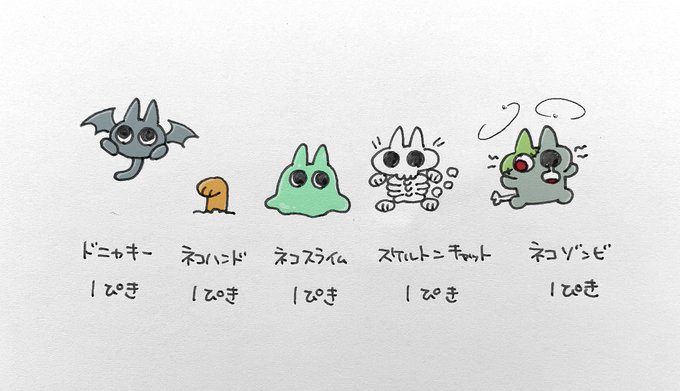 ドニャキー
1ぴき
ネコハンド
1ぴき
ネコスライム
1ぴき
スケルトンキャット
1ぴき
ネコゾンビ
1ぴき